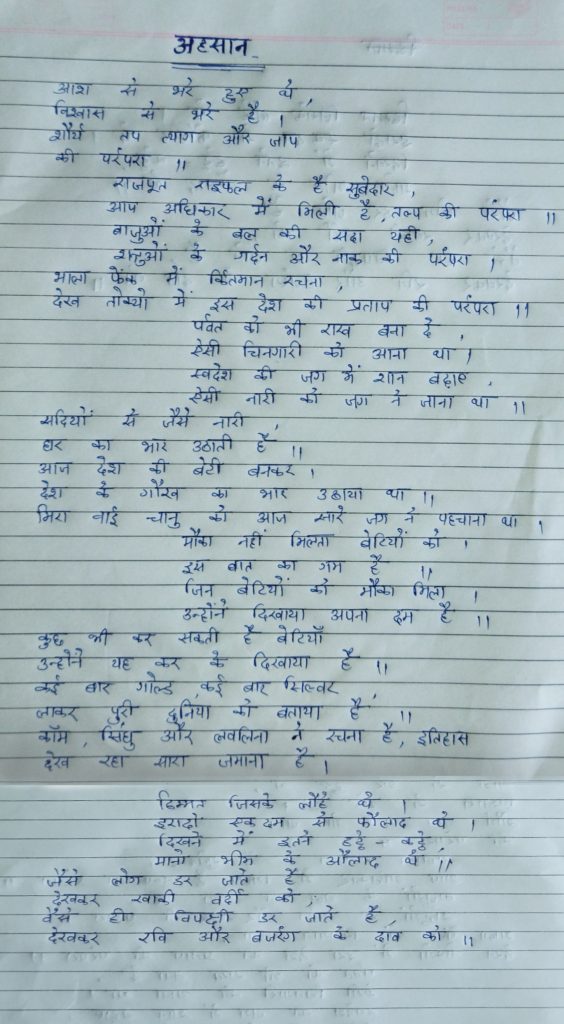 अहसान
आश से भरे हुए थे,
विश्वास से भरे है ।
शौर्य तप त्याग और जाप
की परंपरा ॥
राजपूत राइफल के है सुबेदार,
आप अधिकार में मिली है, तल्प की परंपरा ॥
बाजुओं के बल की सदा यही,
शत्रुओं के गर्दन और नाक की परंपरा ।
भाला फेंक में किर्तिमान रचना,
देख तोक्यो में इस देश की प्रताप की परंपरा ॥
पर्वत को भी राख बना दे,
ऐसी चिनगारी को आना था ।
स्वदेश की जग में शान बढ़ाए,
ऐसी नारी को जग ने जाना था ॥
सदियों से जैसे नारी,
हार का भार उठाती है ॥
आज देश की बेटी बनकर ।
देश के गौरव का भार उठाया था ॥
मिरा बाई चानु को आज सारे जग ने पहचाना था ।
मौका नहीं मिलता बेटियों को ।
इस बात का गम है ॥
जिन बेटियों को मौका मिला ।
उन्होंने दिखाया अपना दम है ॥
कुछ भी कर सकती है बेटियाँ
उन्होंने यह कर के दिखाया है ॥
कई बार गोल्ड, कई बार सिल्वर,
लाकर पुरी दुनिया को बताया है ॥
कॉम, सिंधु और लवलिना ने रचना है, इतिहास
देख रहा सारा जमाना है ।
हिम्मत जिसके लौहे थे ।
इरादो एकदम से फौलाद थे ।
दिखने में इतने हट्टे - कट्टे,
मानो भीम के औलाद थे ॥
जैसे लोग डर जाते है
देखकर खाकी वर्दी को,
वैसे ही विपक्षी डर जाते है,
देखकर रवि और बजरंग के दाव को ॥